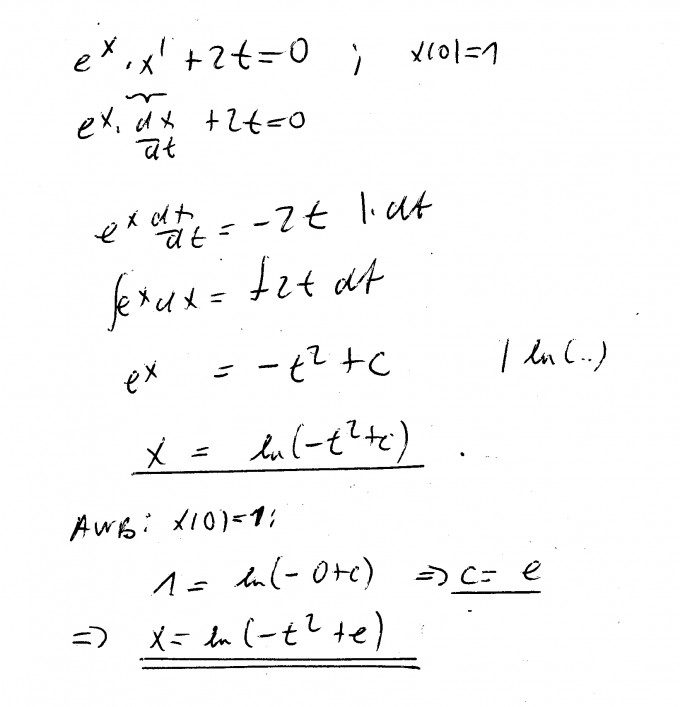 e^x · x' + 2t = 0 ; x(0) = 1
e^x · dx/dt + 2t = 0
e^x dx/dt = -2t | · dt
∫e^x dx = ∫-2t dt
e^x = -t² + C | ln(..)
x = ln(-t² + c) .
AWB: x(0) = 1:
1 = ln(-0+c) => c = e
=> x = ln(-t² + e)